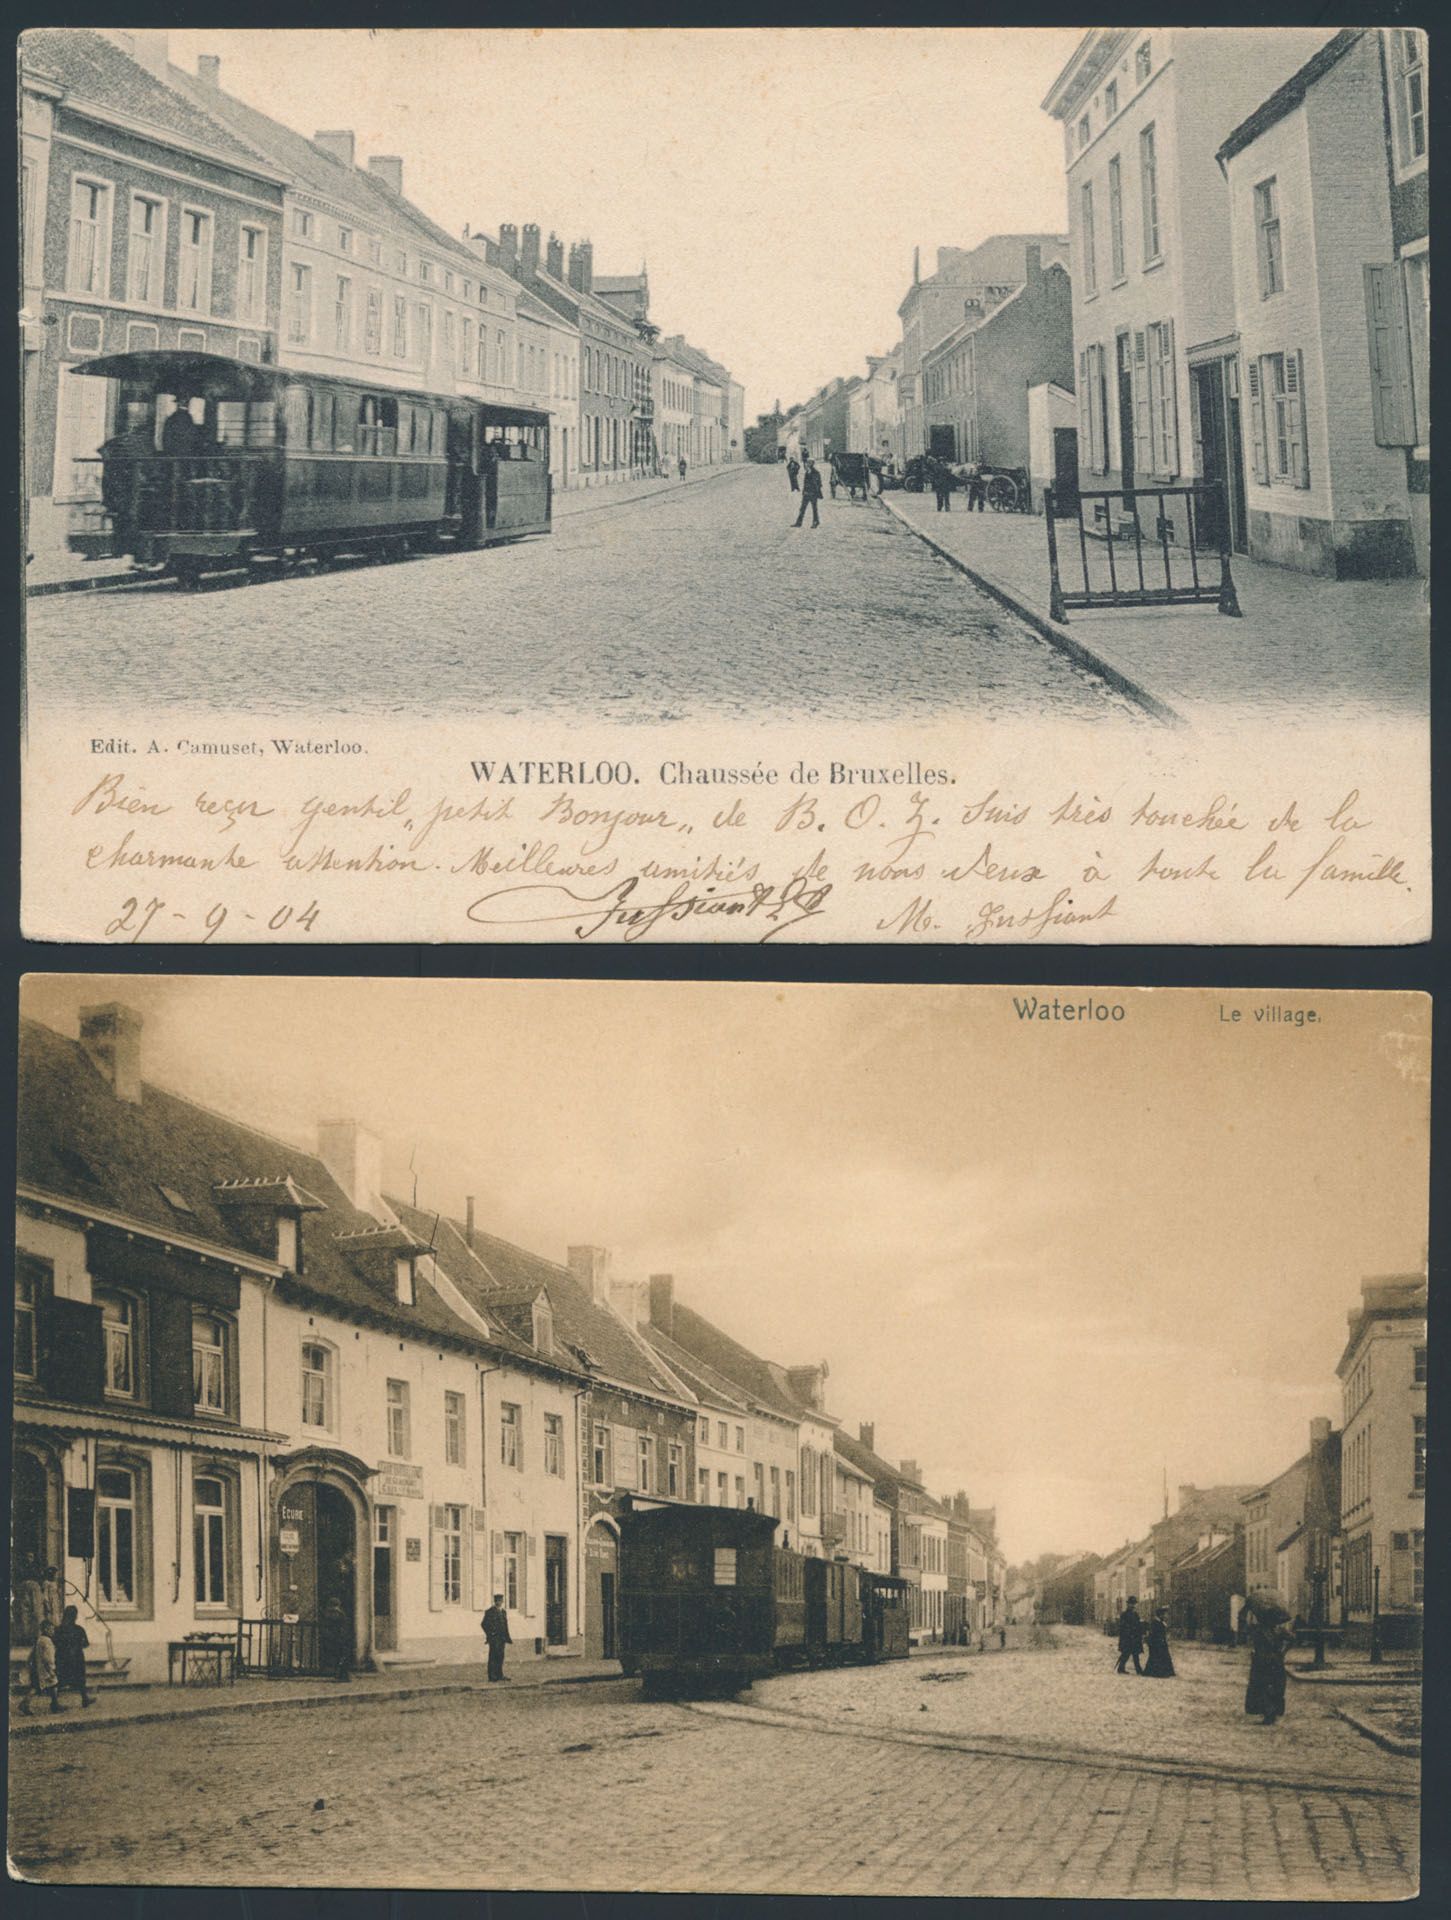 Edit. A. Camuset, Waterloo.
WATERLOO. Chaussée de Bruxelles.
Bien reçu gentil „petit Bonjour„ de B. O. Z. Suis très touchée de la
charmante attention. Meilleures amitiés de nous deux à toute la famille.
27-9-04 Jussiant M. Jussiant
Waterloo Le village.
ECURE